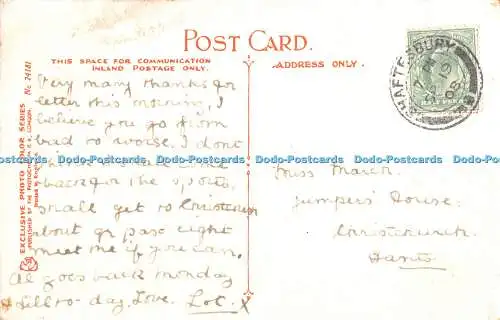 POST CARD.
THIS SPACE FOR COMMUNICATION
INLAND POSTAGE ONLY.
ADDRESS ONLY.
No 24181
EXCLUSIVE PHOTO COLOR SERIES
SHAFTESBURY
Very many thanks for
letter this morning, I
believe you go from
bad to worse. I dont
back for the sports,
shall get to Christchurch
about ½ past eight
meet me if you can,
Al goes back monday
& Lill to-day. Love. Lot. X
Miss March.
Jumpers House.
Christchurch.
Hants.
Dodo-Postcards Dodo-Postcards Dodo-Postcards Dodo-Postcards Dodo-Postcards